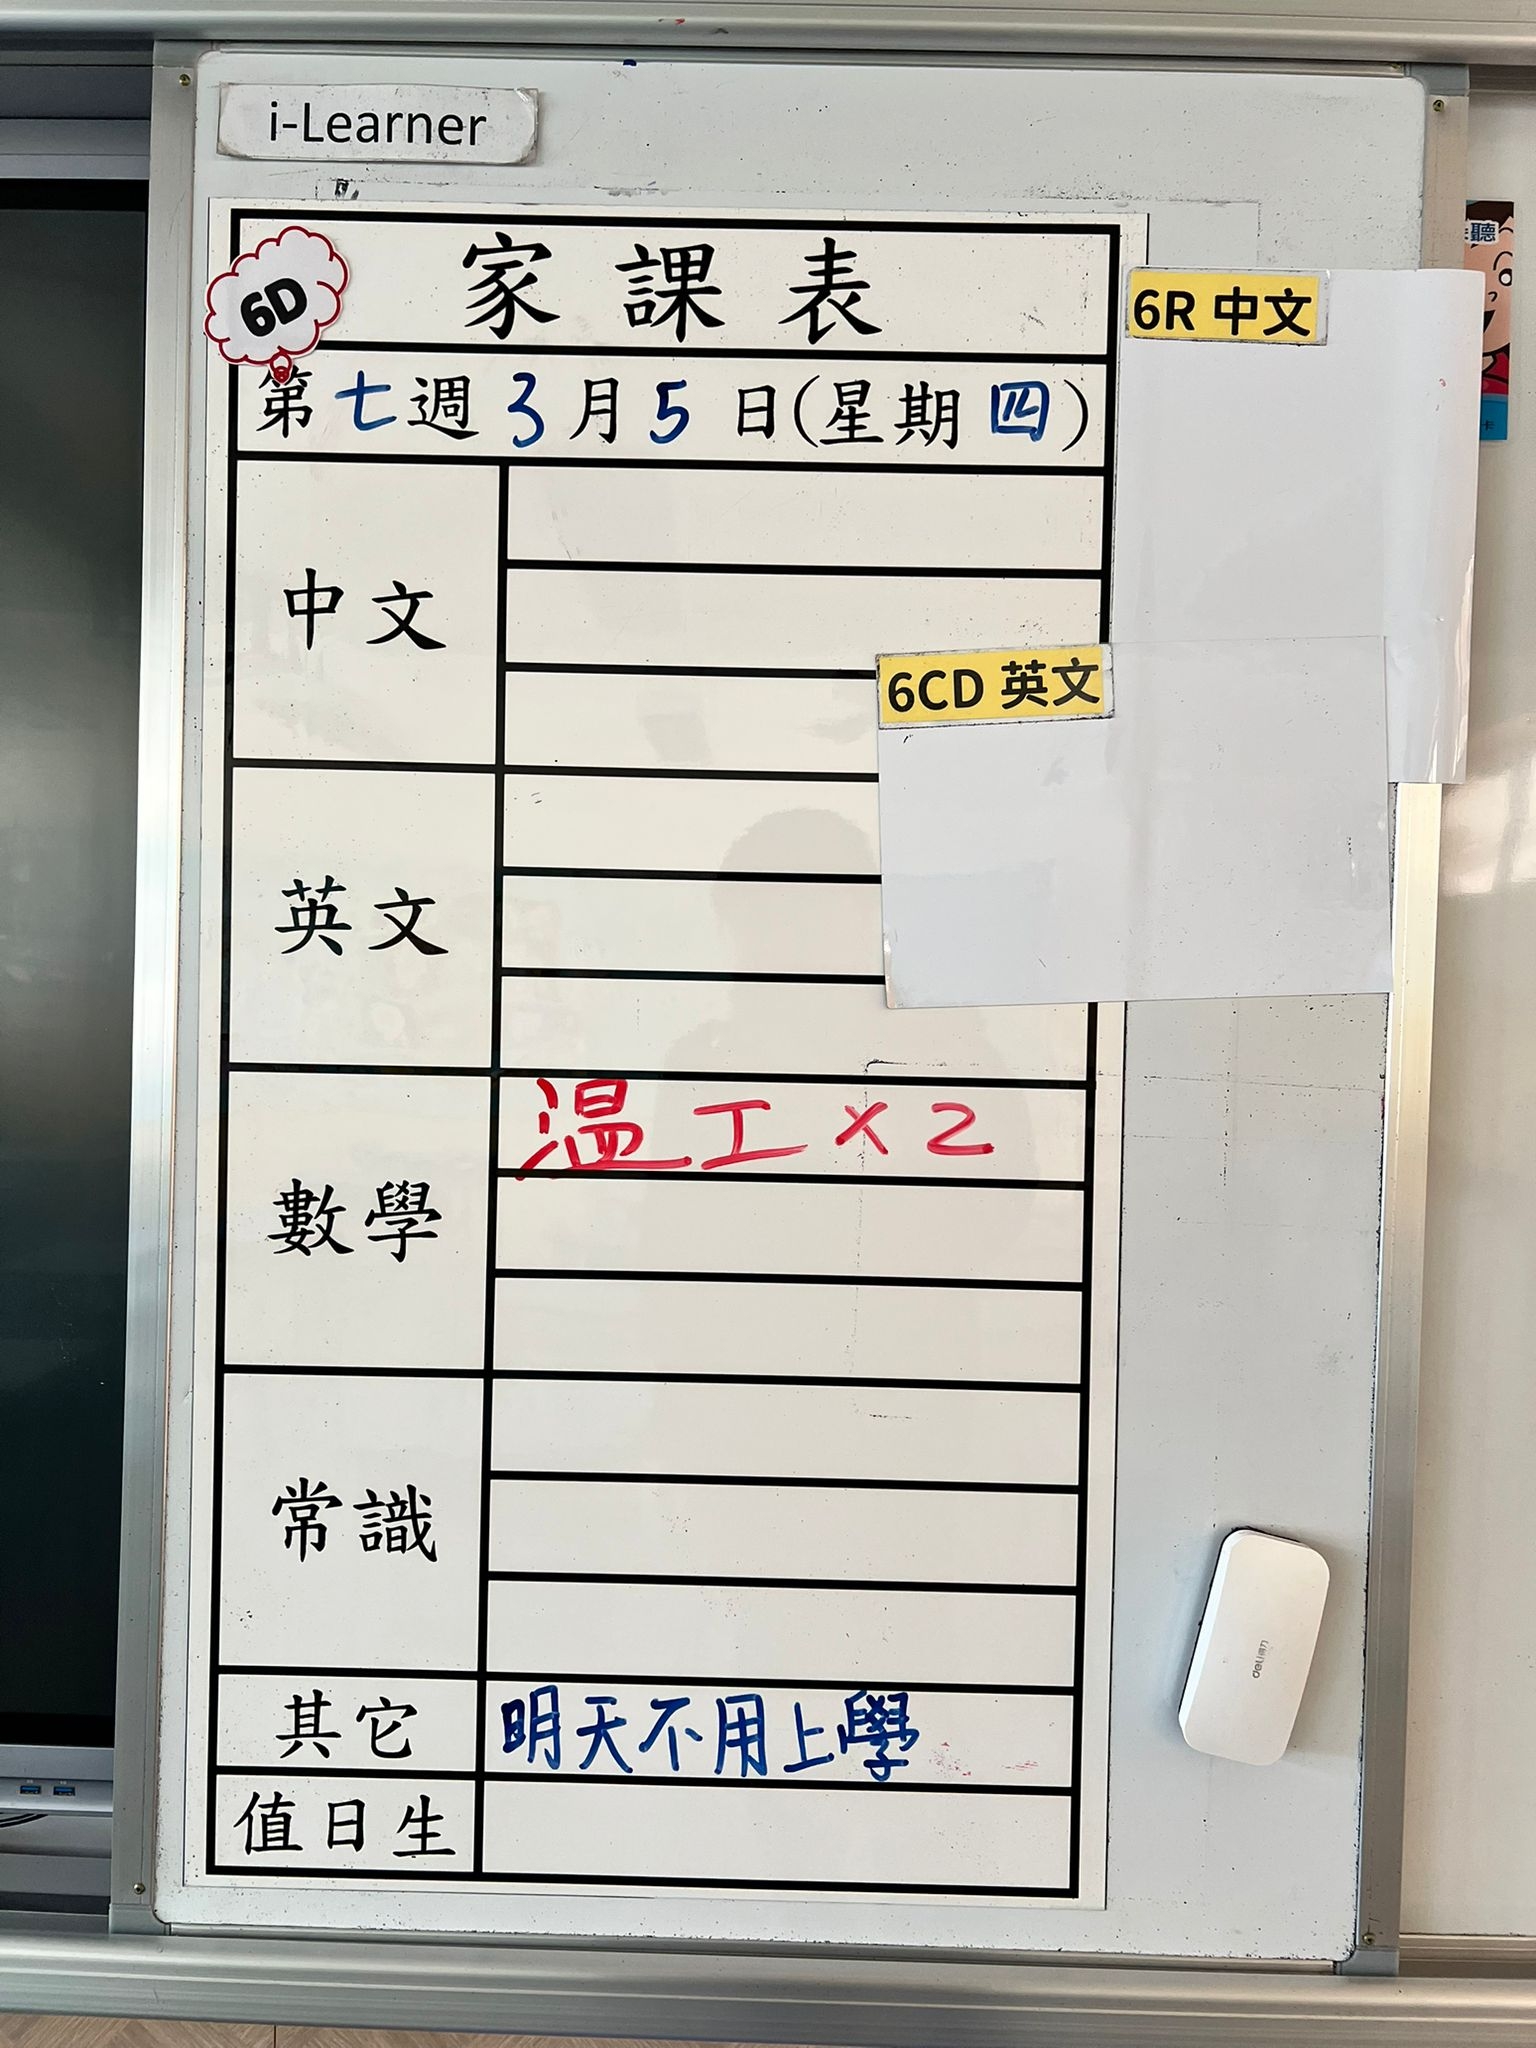 i-Learner
6D
家課表
第七週3月5日(星期四)
6R 中文
中文
6CD 英文
英文
數學
溫工×2
常識
其它
明天不用上學
值日生
deli得力
聽
卡